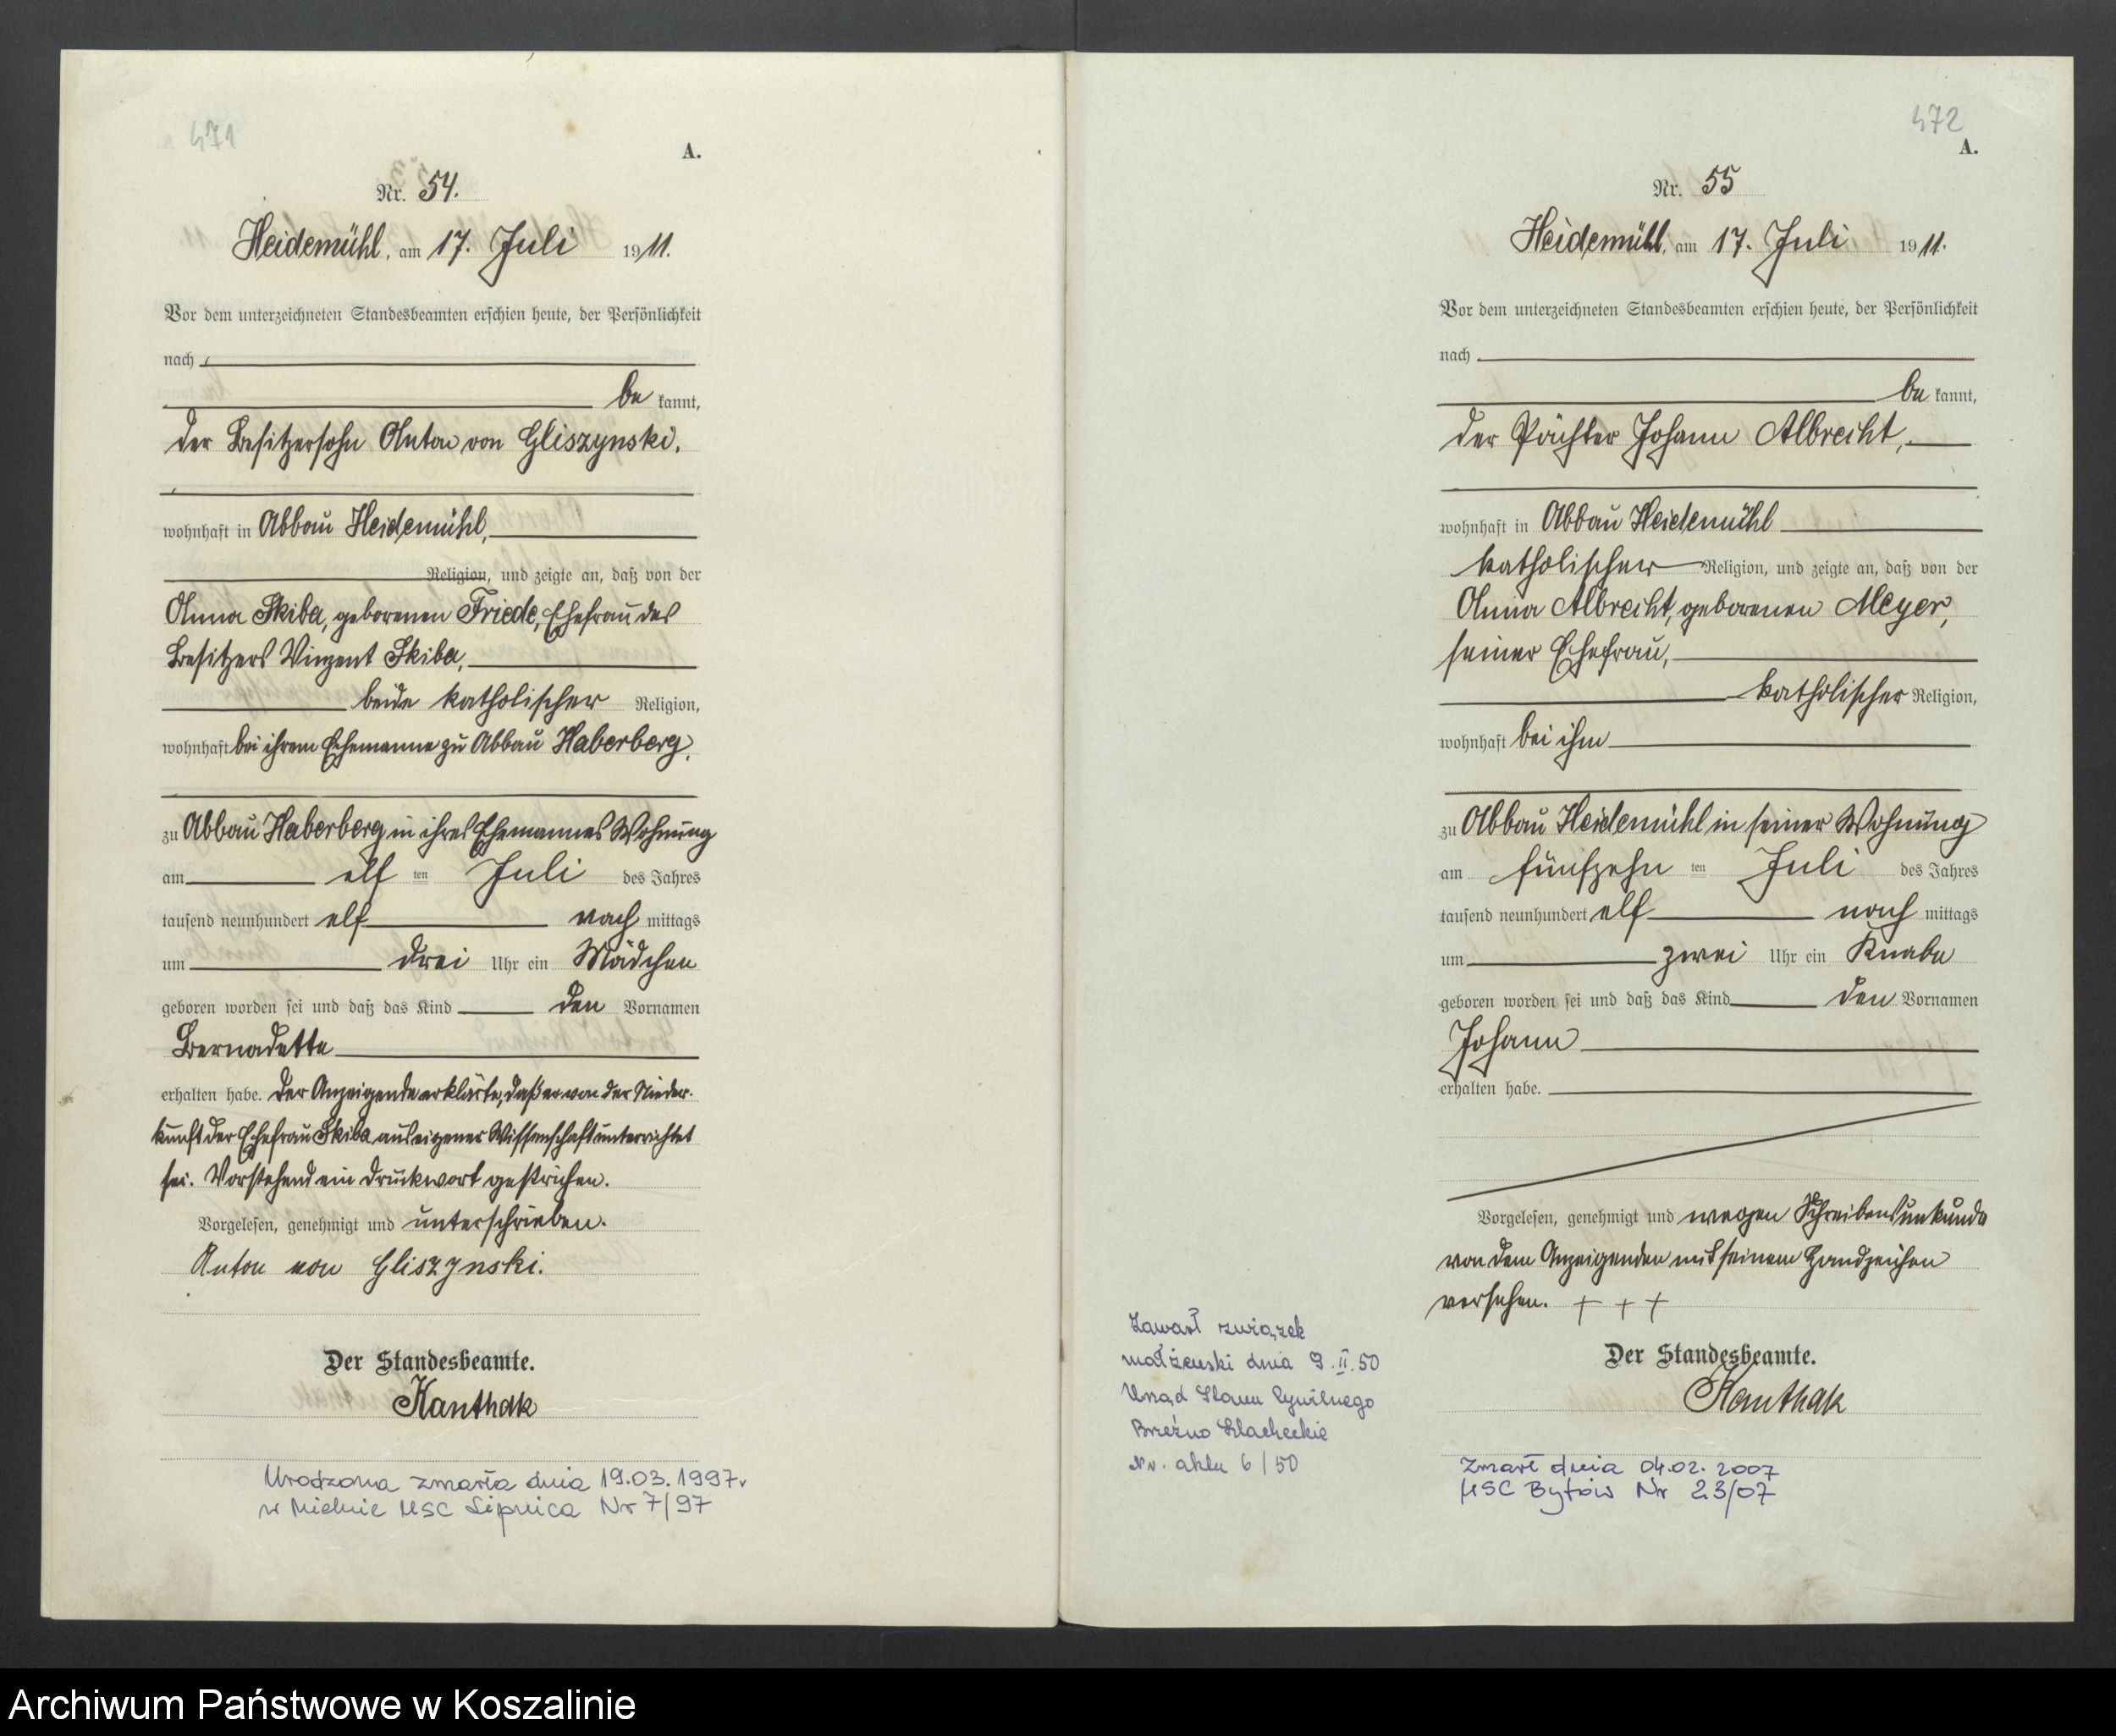 471
A.
Nr. 54.
Heidemühl, am 17. Juli 1911.
Vor dem unterzeichneten Standesbeamten erschien heute, der Persönlichkeit
nach
be kannt,
der Besitzersohn Anton von Gliszynski,
wohnhaft in Abbau Heidemühl,
Religion, und zeigte an, daß von der
Anna Skiba, geborenen Friede, Ehefrau des
Besitzers Vinzent Skiba,
beide katholischer Religion,
wohnhaft bei ihrem Ehemanne zu Abbau Haberberg,
zu Abbau Haberberg in ihres Ehemannes Wohnung
am elf ten Juli des Jahres
tausend neunhundert elf nach mittags
um drei Uhr ein Mädchen
geboren worden sei und daß das Kind den Vornamen
Bernadette
erhalten habe. Der Anzeigende erklärte, daß er von der Nieder-
kunft der Ehefrau Skiba aus eigener Wissenschaft unterrichtet
sei. Vorstehend ein Druckwort gestrichen.
Vorgelesen, genehmigt und unterschrieben.
Anton von Gliszynski.
Der Standesbeamte.
Kanthak
Urodzona zmarła dnia 19.03.1997r
w Mielnie USC Lipnica Nr 7/97
472
A.
Nr. 55
Heidemühl, am 17. Juli 1911.
Vor dem unterzeichneten Standesbeamten erschien heute, der Persönlichkeit
nach
be kannt,
der Pächter Johann Albrecht,
wohnhaft in Abbau Heidemühl
katholischer Religion, und zeigte an, daß von der
Anna Albrecht, geborenen Meyer,
seiner Ehefrau,
katholischer Religion,
wohnhaft bei ihm
zu Abbau Heidemühl in seiner Wohnung
am fünfzehn ten Juli des Jahres
tausend neunhundert elf nach mittags
um zwei Uhr ein Knabe
geboren worden sei und daß das Kind den Vornamen
Johann
erhalten habe.
Vorgelesen, genehmigt und wegen Schreibensunkunde
von dem Anzeigenden mit seinem Handzeichen
versehen. + + +
Der Standesbeamte.
Kanthak
Zawarł związek
małżeński dnia 9.II.50
Urząd Stanu Cywilnego
Brzeźno Szlacheckie
Nr. aktu 6/50
Zmarł dnia 04.02.2007
USC Bytów Nr 23/07
Archiwum Państwowe w Koszalinie